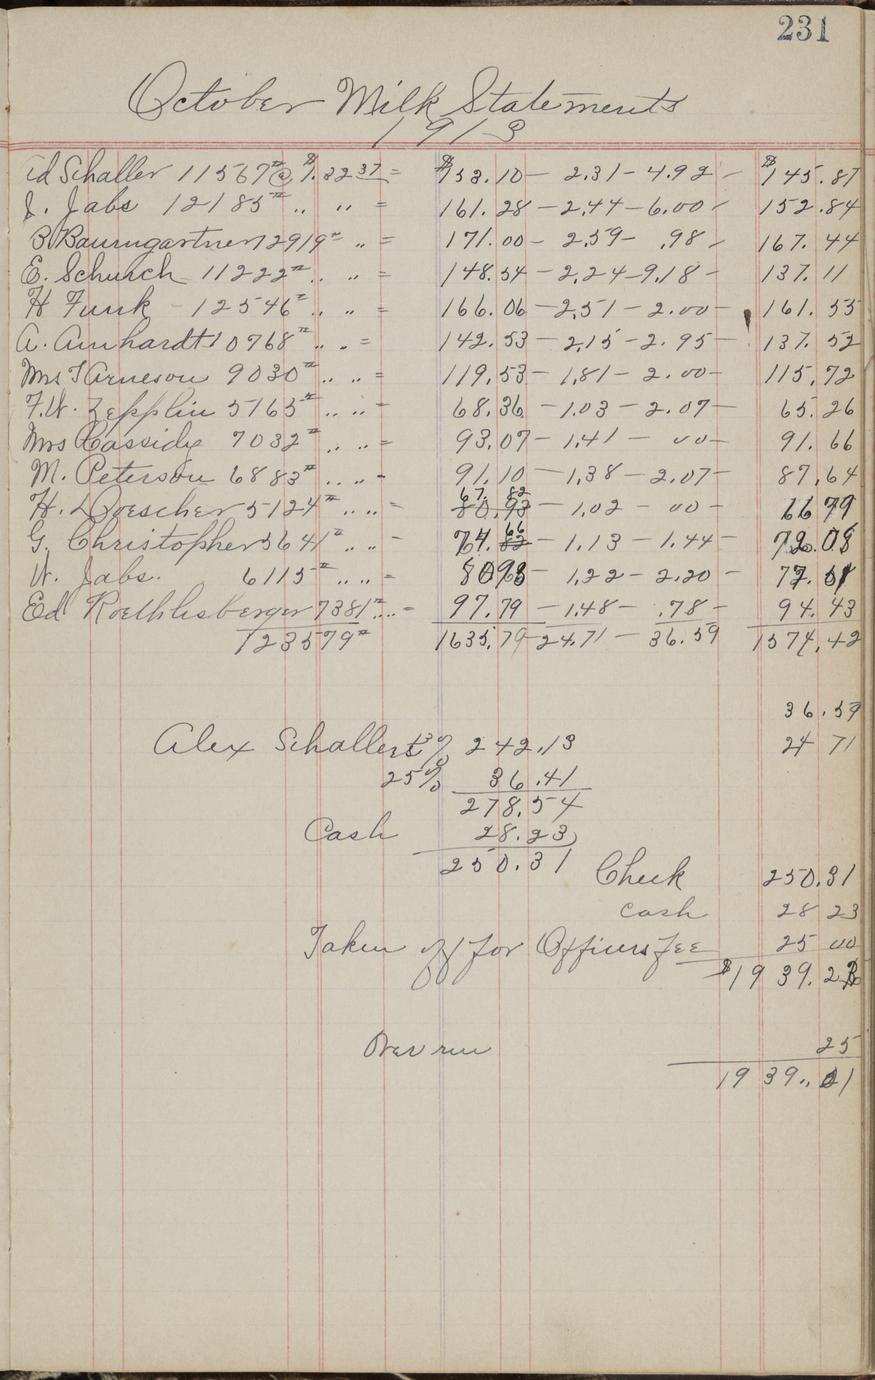 231
October Milk Statements
1913
Ed Schaller 11567# @ $1.3237 = $153.10 — 2.31 — 4.92 — $145.87
J. Jabs 12185# .. .. = 161.28 — 2.44 — 6.00 — 152.84
B. Baumgartner 12919# .. = 171.00 — 2.59 — .98 — 167.44
E. Schurch 11222# .. .. = 148.54 — 2.24 — 9.18 — 137.11
H Funk — 12546# .. .. = 166.06 — 2.51 — 2.00 — 161.55
A. Arnhardt 10768# .. .. = 142.53 — 2.15 — 2.95 — 137.52
Mrs T Arneson 9030# .. .. = 119.53 — 1.81 — 2.00 — 115.72
F.W. Zepplin 5165# .. .. = 68.36 — 1.03 — 2.07 — 65.26
Mrs Cassidy 7032# .. .. = 93.07 — 1.41 — 00 — 91.66
M. Peterson 6883# .. .. - 91.10 — 1.38 — 2.07 — 87.64
67.82
H. Doescher 5124# .. .. = 80.93 — 1.02 — 00 — 66 79
66
G. Christopher 5641# .. .. - 74.82 — 1.13 — 1.44 — 72.08
W. Jabs. 6115# .. .. = 80 93 — 1.22 — 2.20 — 77.51
Ed Roethlisberger 7381# .. .. = 97.79 — 1.48 — .78 — 94.43
123579# 1635.79 — 24.71 — 36.59 1574.42
36.59
Alex Schallers 15% 242.13 24 71
25% 36.41
278.54
Cash 28.23
250.31
Check 250.31
cash 28 23
Taken off for Officers fee 25 00
$1939.26
Over run 25
1939.. 01